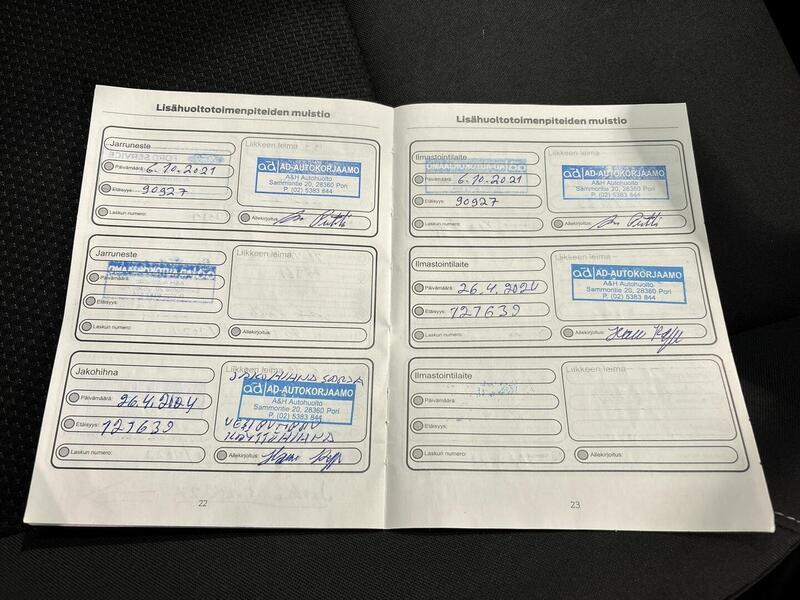 Lisähuoltotoimenpiteiden muistio
Jarruneste
Päivämäärä: 6.10.2021
Etäisyys: 90927
Laskun numero:
Liikkeen leima
ad AD-AUTOKORJAAMO
A&H Autohuolto
Sammontie 20, 28360 Pori
P. (02) 5383 844
Allekirjoitus:
Jarruneste
Päivämäärä:
Etäisyys:
Laskun numero:
Liikkeen leima
Allekirjoitus:
Jakohihna
Päivämäärä: 26.4.2024
Etäisyys: 127639
Laskun numero:
Liikkeen leima
JAKOHIHNA SARJA
ad AD-AUTOKORJAAMO
A&H Autohuolto
Sammontie 20, 28360 Pori
P. (02) 5383 844
KÄYTTÖHIHNA
Allekirjoitus:
22
Lisähuoltotoimenpiteiden muistio
Ilmastointilaite
Päivämäärä: 6.10.2021
Etäisyys: 90927
Laskun numero:
Liikkeen leima
ad AD-AUTOKORJAAMO
A&H Autohuolto
Sammontie 20, 28360 Pori
P. (02) 5383 844
Allekirjoitus:
Ilmastointilaite
Päivämäärä: 26.4.2024
Etäisyys: 127639
Laskun numero:
Liikkeen leima
ad AD-AUTOKORJAAMO
A&H Autohuolto
Sammontie 20, 28360 Pori
P. (02) 5383 844
Allekirjoitus:
Ilmastointilaite
Päivämäärä:
Etäisyys:
Laskun numero:
Liikkeen leima
Allekirjoitus:
23